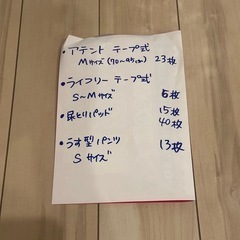 ・アテント テープ式
Mサイズ(70〜95cm) 23枚
・ライフリー テープ式
S〜Mサイズ 6枚
・尿とりパッド 15枚
40枚
・うす型パンツ 13枚
Sサイズ